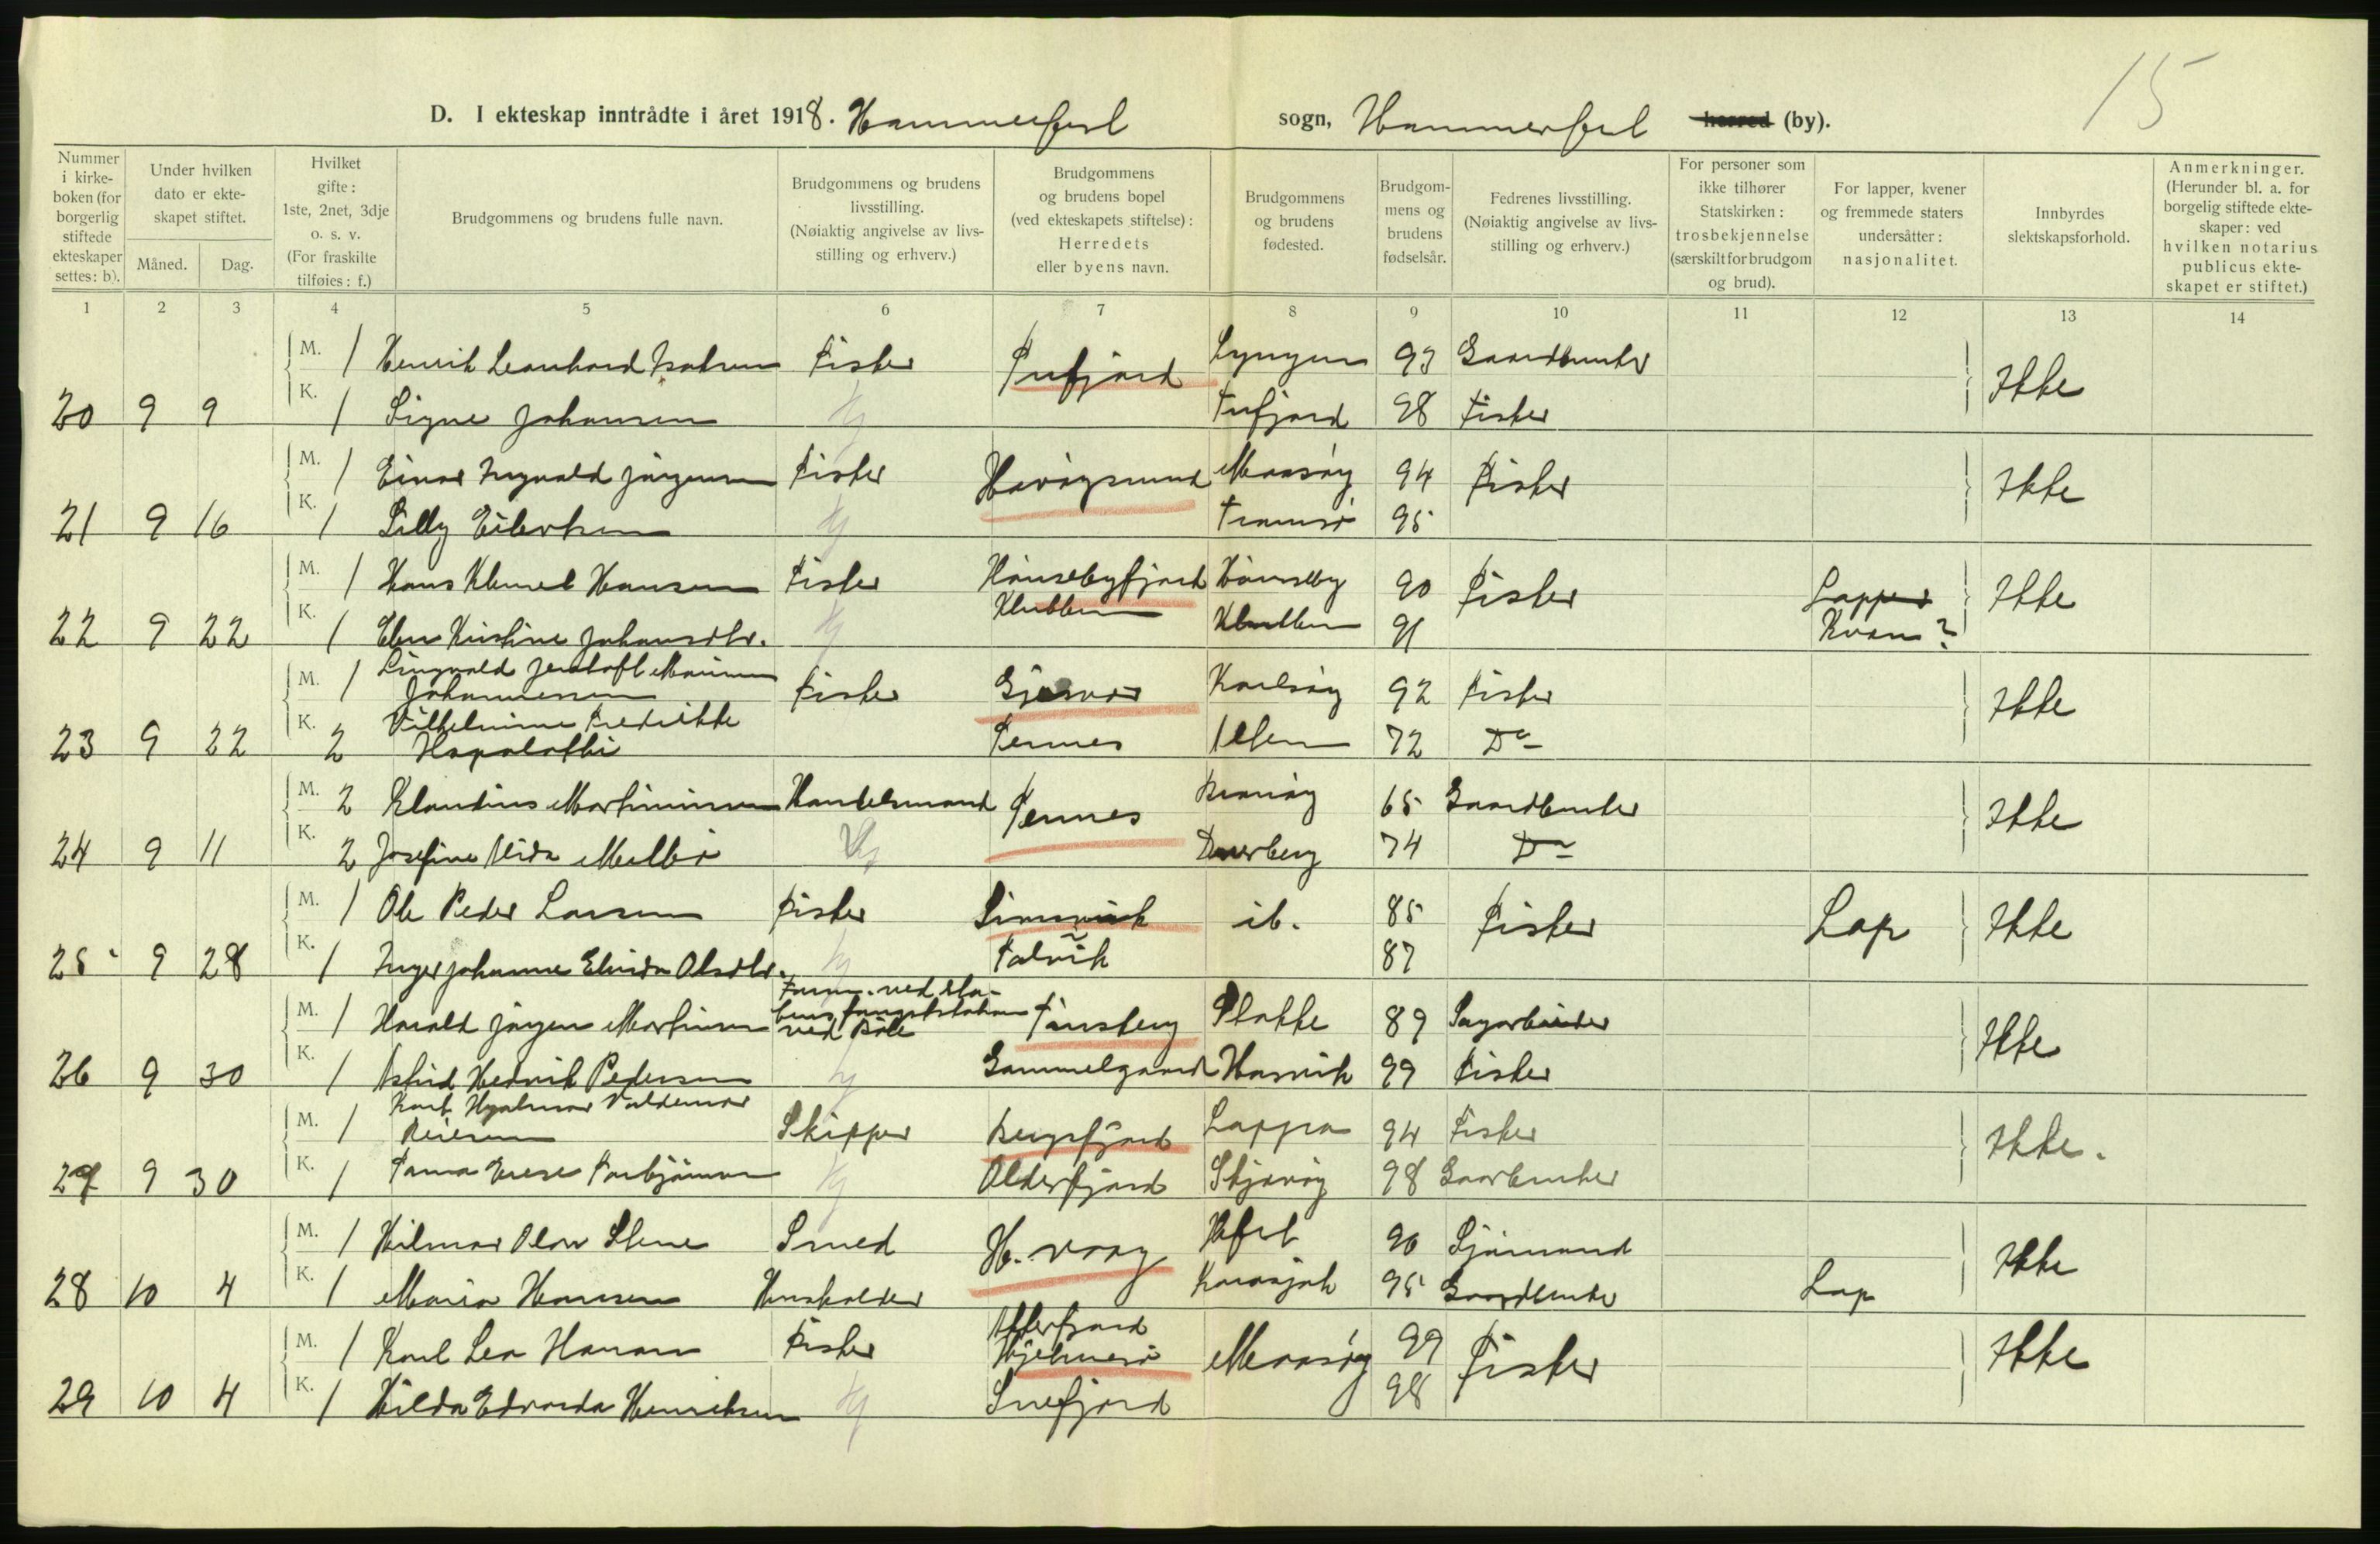 15
D. I ekteskap inntrådte i året 1918. Hammerfest sogn, Hammerfest herred (by).
Nummer i kirkeboken (for borgerlig stiftede ekteskaper settes: b).
Under hvilken dato er ekteskapet stiftet.
Måned. Dag.
Hvilket gifte: 1ste, 2net, 3dje o. s. v. (For fraskilte tilføies: f.)
Brudgommens og brudens fulle navn.
Brudgommens og brudens livsstilling. (Nøiaktig angivelse av livsstilling og erhverv.)
Brudgommens og brudens bopel (ved ekteskapets stiftelse): Herredets eller byens navn.
Brudgommens og brudens fødested.
Brudgommens og brudens fødselsår.
Fedrenes livsstilling. (Nøiaktig angivelse av livsstilling og erhverv.)
For personer som ikke tilhører Statskirken: trosbekjennelse (særskilt for brudgom og brud).
For lapper, kvener og fremmede staters undersåtter: nasjonalitet.
Innbyrdes slektskapsforhold.
Anmerkninger. (Herunder bl. a. for borgelig stiftede ekteskaper: ved hvilken notarius publicus ekteskapet er stiftet.)
1 2 3 4 5 6 7 8 9 10 11 12 13 14
M. 1 Henrik Leonhard Isaksen Fisker Tufjord Lyngen 93 Gaardbruker Ikke
20 9 9 K. 1 Signe Johansen Tufjord 98 Fisker
M. 1 Einar Ingvald Jørgensen Fisker Havøysund Maasøy 94 Fisker Ikke
21 9 16 K. 1 Lilly Eilertsen Tromsø 95
M. 1 Hans Klemet Hansen Fisker Hønsebyfjord Hønseby 90 Fisker Lapper Ikke
22 9 22 K. 1 Elen Kirstine Johansdtr. Klubben Klubben 91 Kvæn?
M. 1 Johannessen Fisker Gjesvær Karlsøy 92 Fisker Ikke
23 9 22 K. 2 Vilhelmine Fredrikke Tennes 72 Do
M. 2 Klaudius Martinussen Handelsmand Tennes 65 Gaardbruker Ikke
24 9 11 K. 2 Josefine Alida Melbø Dverberg 74 Do
M. 1 Ole Peder Larsen Fisker ib. 85 Fisker Lap Ikke
25 9 28 K. 1 Inger Johanne Elvida Olsdtr. Talvik 87
M. 1 Harald Jørgen Martinsen ved Tønsberg Stokke 89 Sagarbeider Ikke
26 9 30 K. 1 Astrid Hedvik Pedersen Gammelgaard Hasvik 99 Fisker
M. 1 Karl Hjalmar Valdemar Reiersen Skipper Bergsfjord Loppa 94 Fisker Ikke.
27 9 30 K. 1 Torbjørnsen Olderfjord Skjervøy 98 Gaarbruker
M. 1 Hilmar Olav Stene Smed H. vaag Hfest 90 Sjømand Ikke
28 10 4 K. 1 Maria Hansen Husholder Karasjok 95 Gaardbruker Lap
M. 1 Karl Leo Hansen Fisker Hjelmsø Maasøy 99 Fisker Ikke
29 10 4 K. 1 Hilda Edvarda Henriksen Snefjord 98